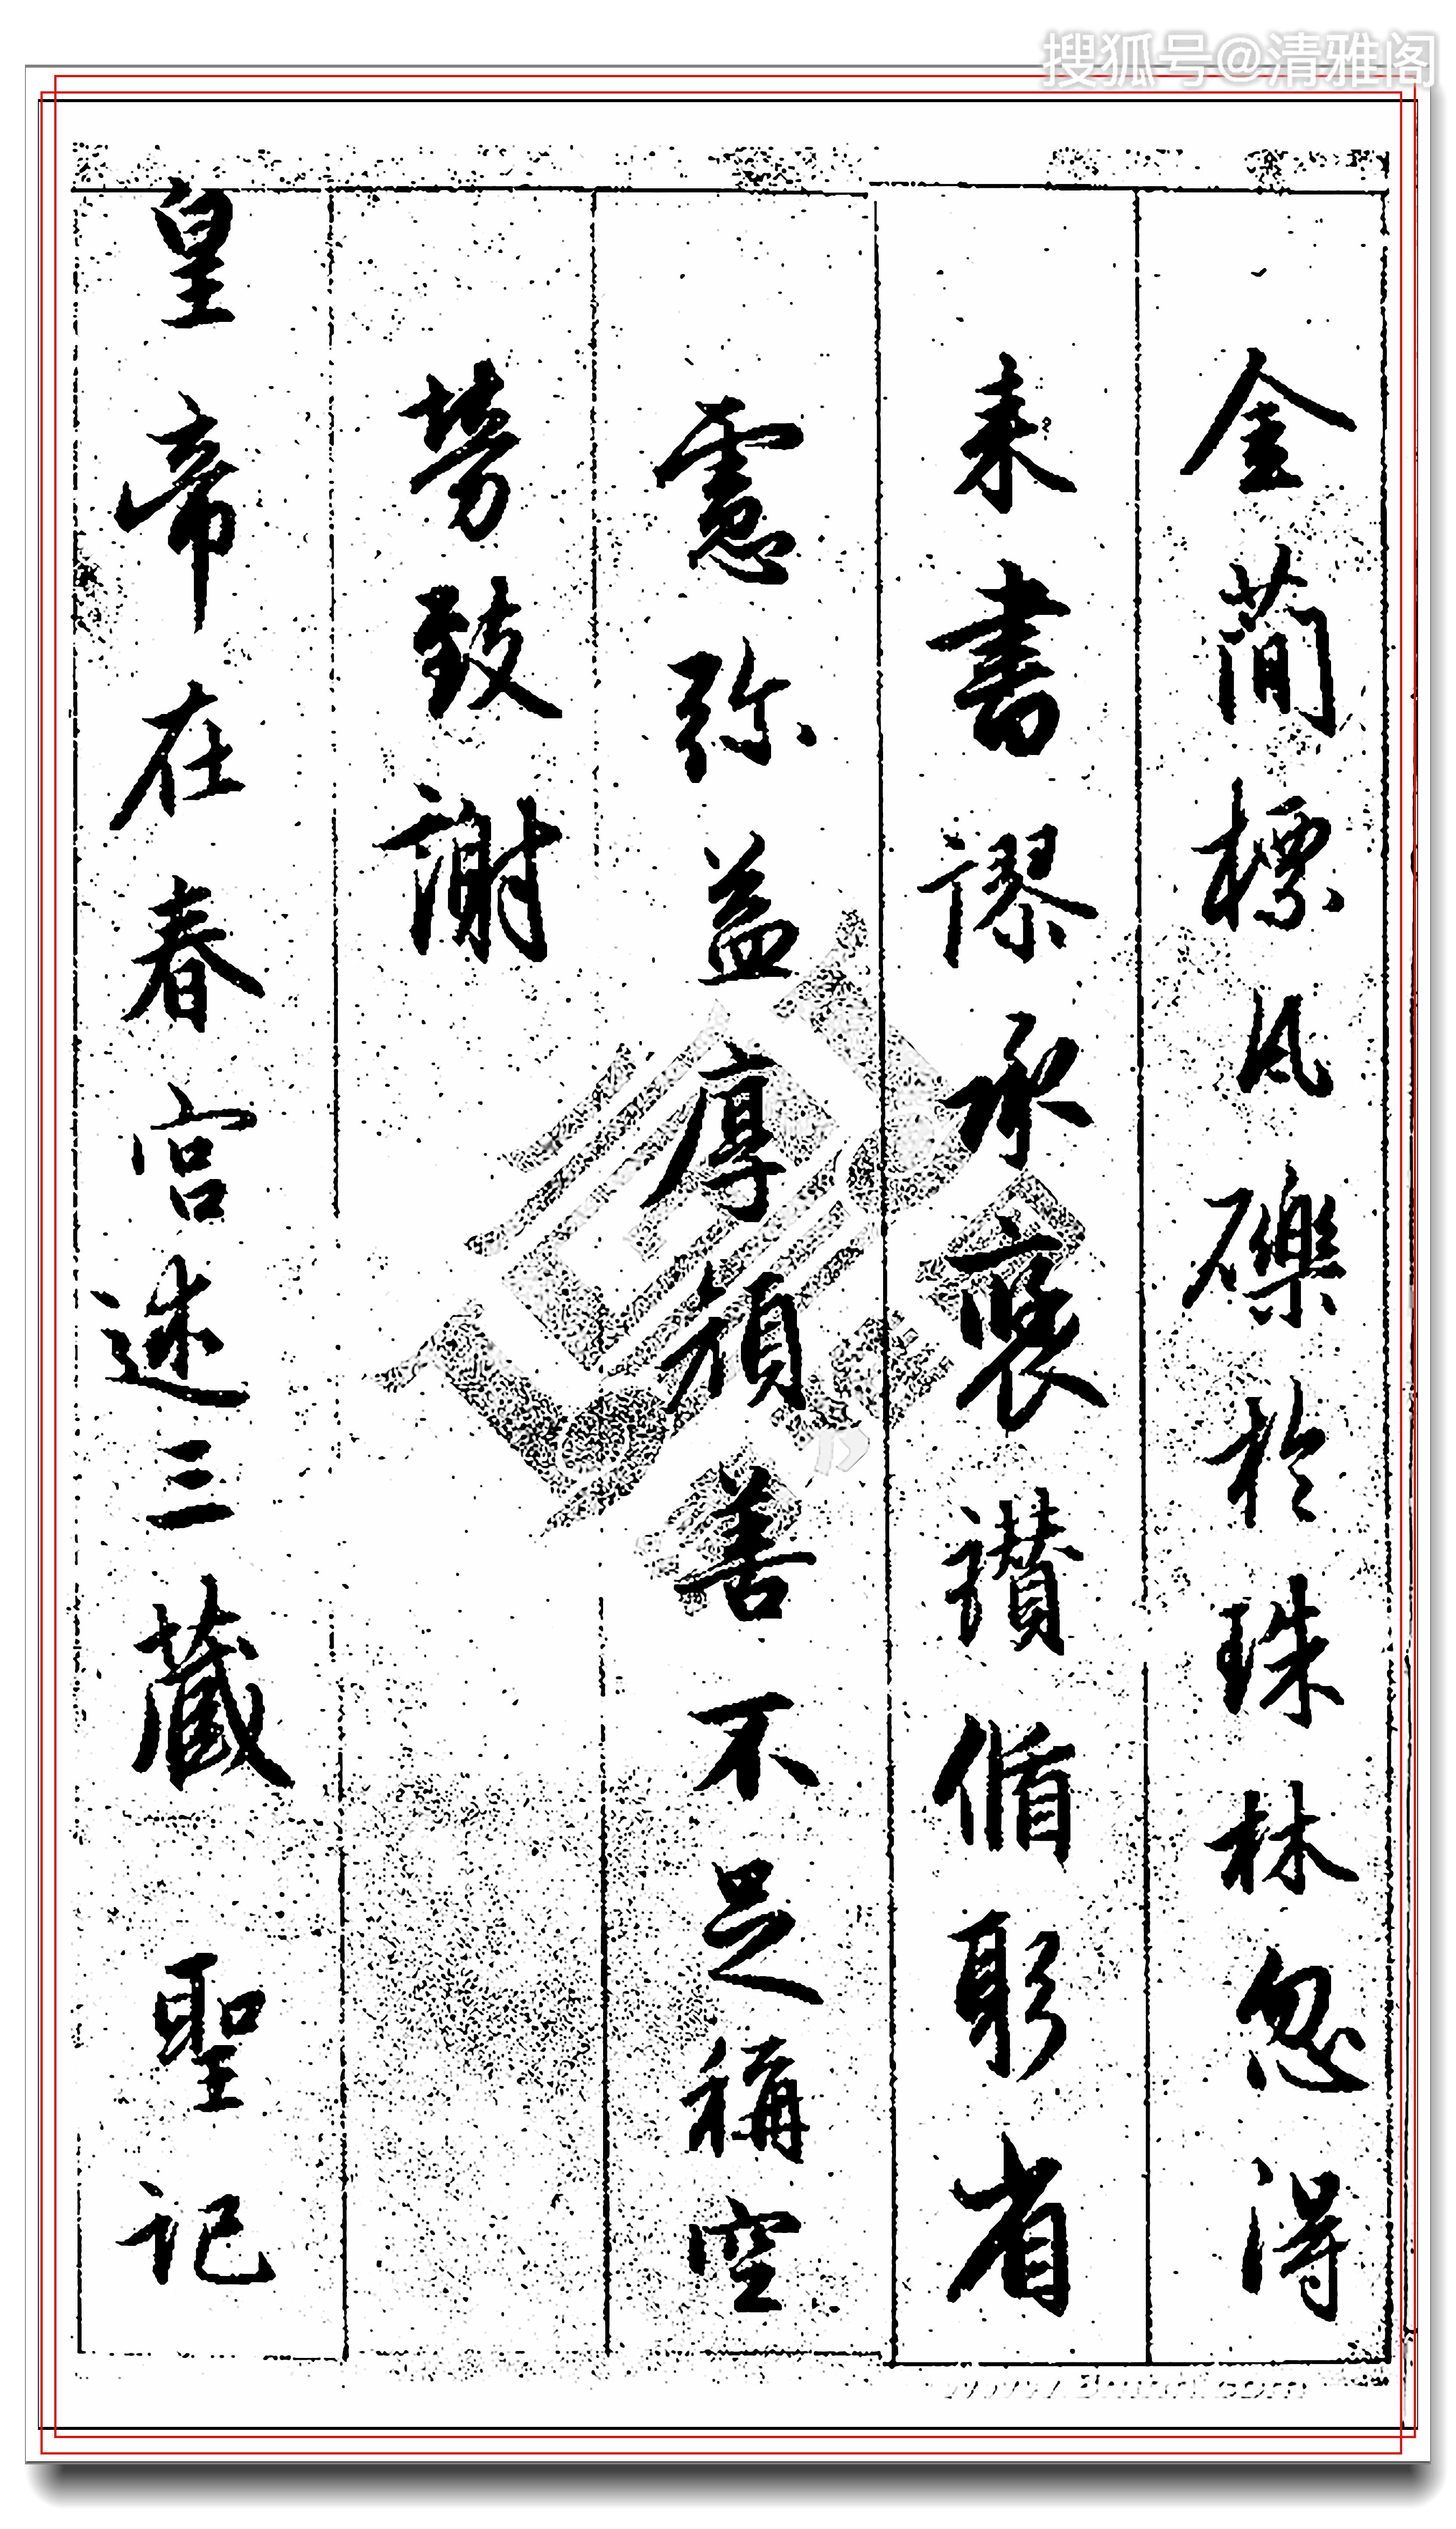 搜狐号@清雅阁
金蕳標瓦礫於珠林忽得
来書謬承褒讃循躬省
慮弥益厚顔善不足稱空
勞致謝
皇帝在春宮述三藏聖記